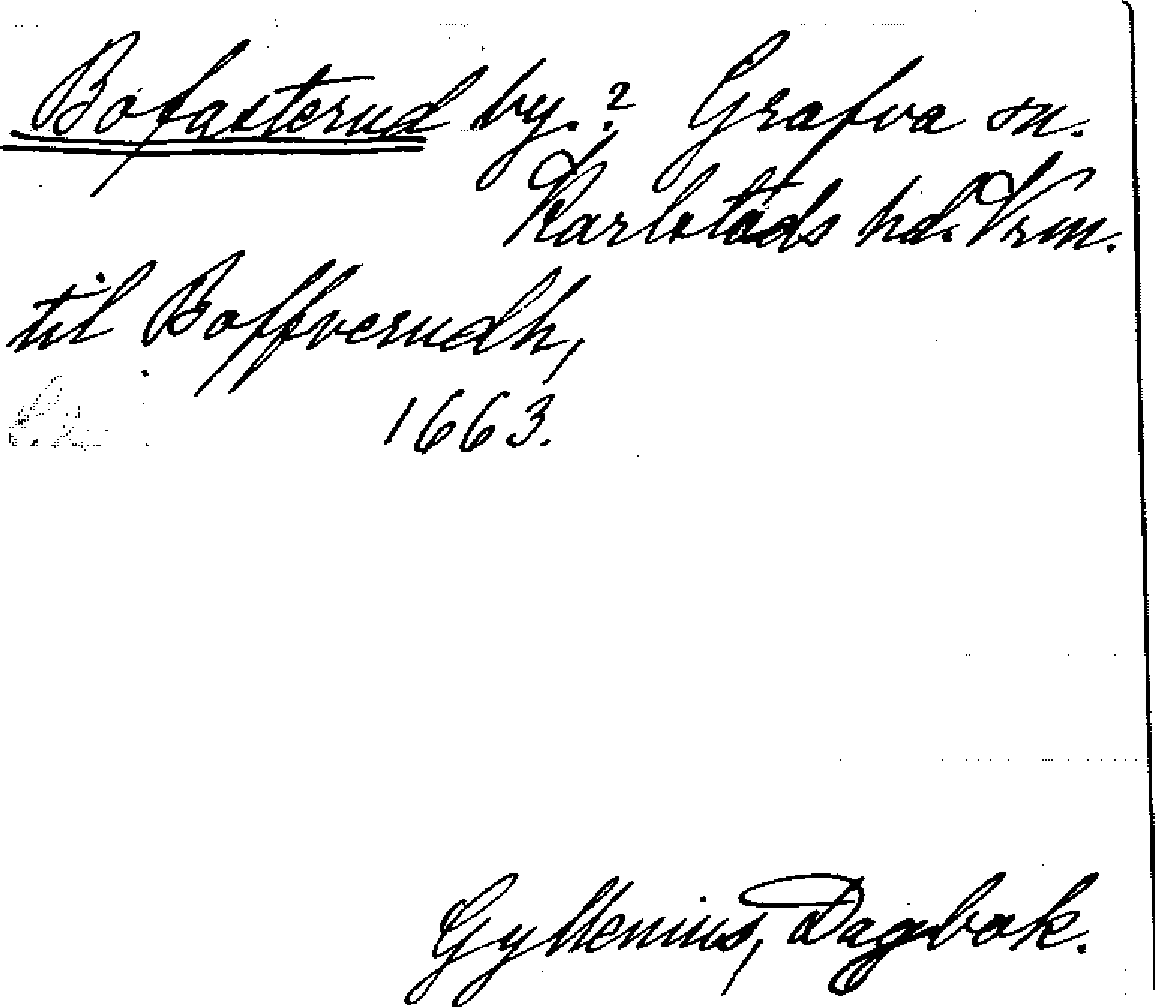 Bofasterud by.? Grafva sn.
Karlstads hd. Vrm.
til Boffverudh,
1663.
Gyllenius, Dagbok.